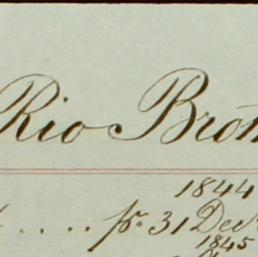 Rio Brot
1844
pr. 31 Decr
1845